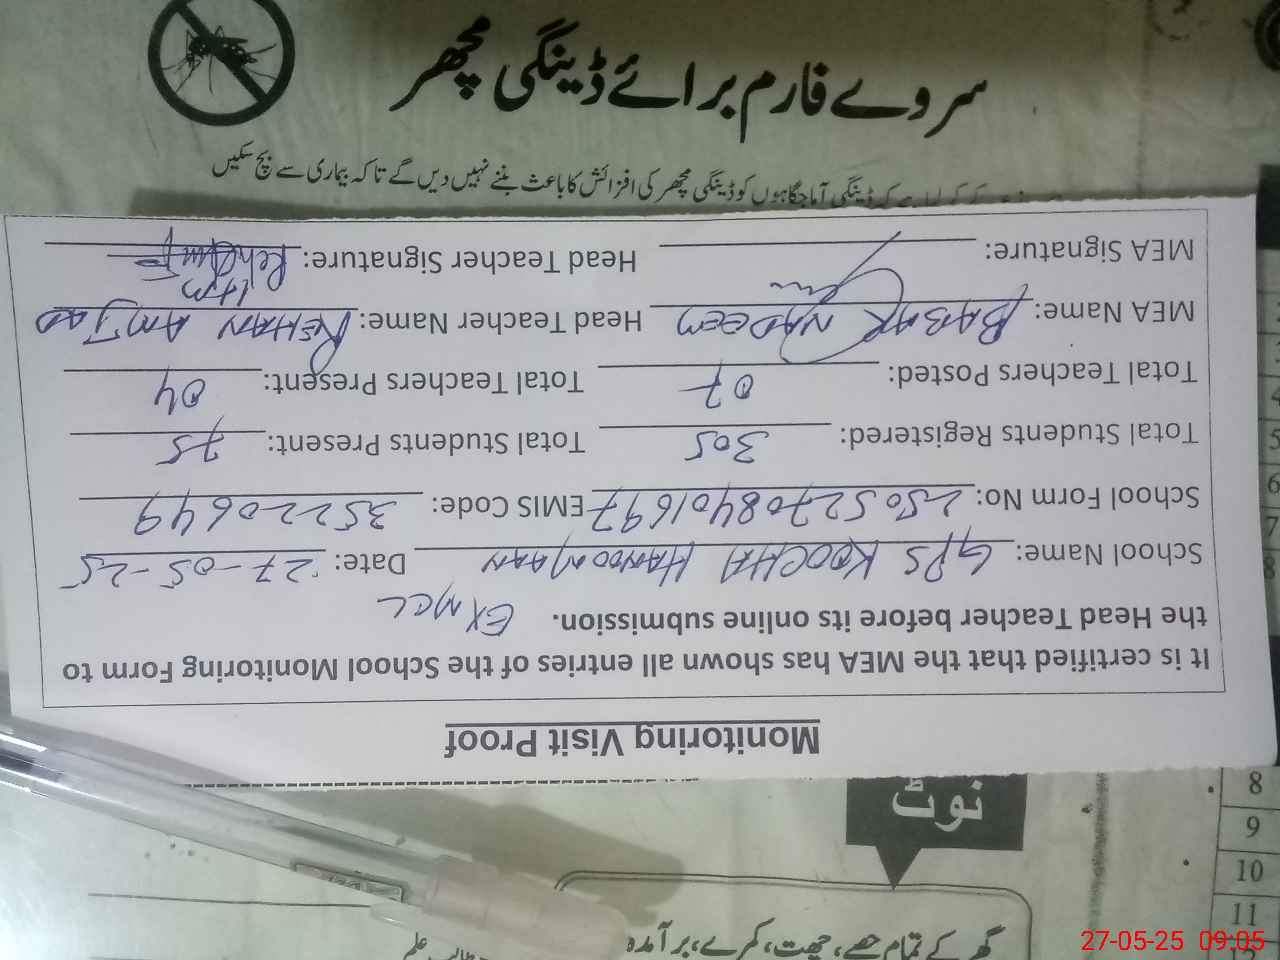 سروے فارم برائے ڈینگی مچھر
ڈینگی آماجگاہوں کو ڈینگی مچھر کی افزائش کا باعث بننے نہیں دیں گے تاکہ بیماری سے بچ سکیں
Monitoring Visit Proof
It is certified that the MEA has shown all entries of the School Monitoring Form to
the Head Teacher before its online submission. EX MCL
School Name: GPS KOOCHA HANOOMAAN Date: 27-05-25
School Form No: 25052708401697 EMIS Code: 35220649
Total Students Registered: 305 Total Students Present: 75
Total Teachers Posted: 07 Total Teachers Present: 04
MEA Name: BABAR NADEEM Head Teacher Name: REHAN AMJAD
MEA Signature: Head Teacher Signature:
نوٹ
8
9
10
11
گھر کے تمام حصے، چھت، کمرے، برآمدہ
27-05-25 09:05